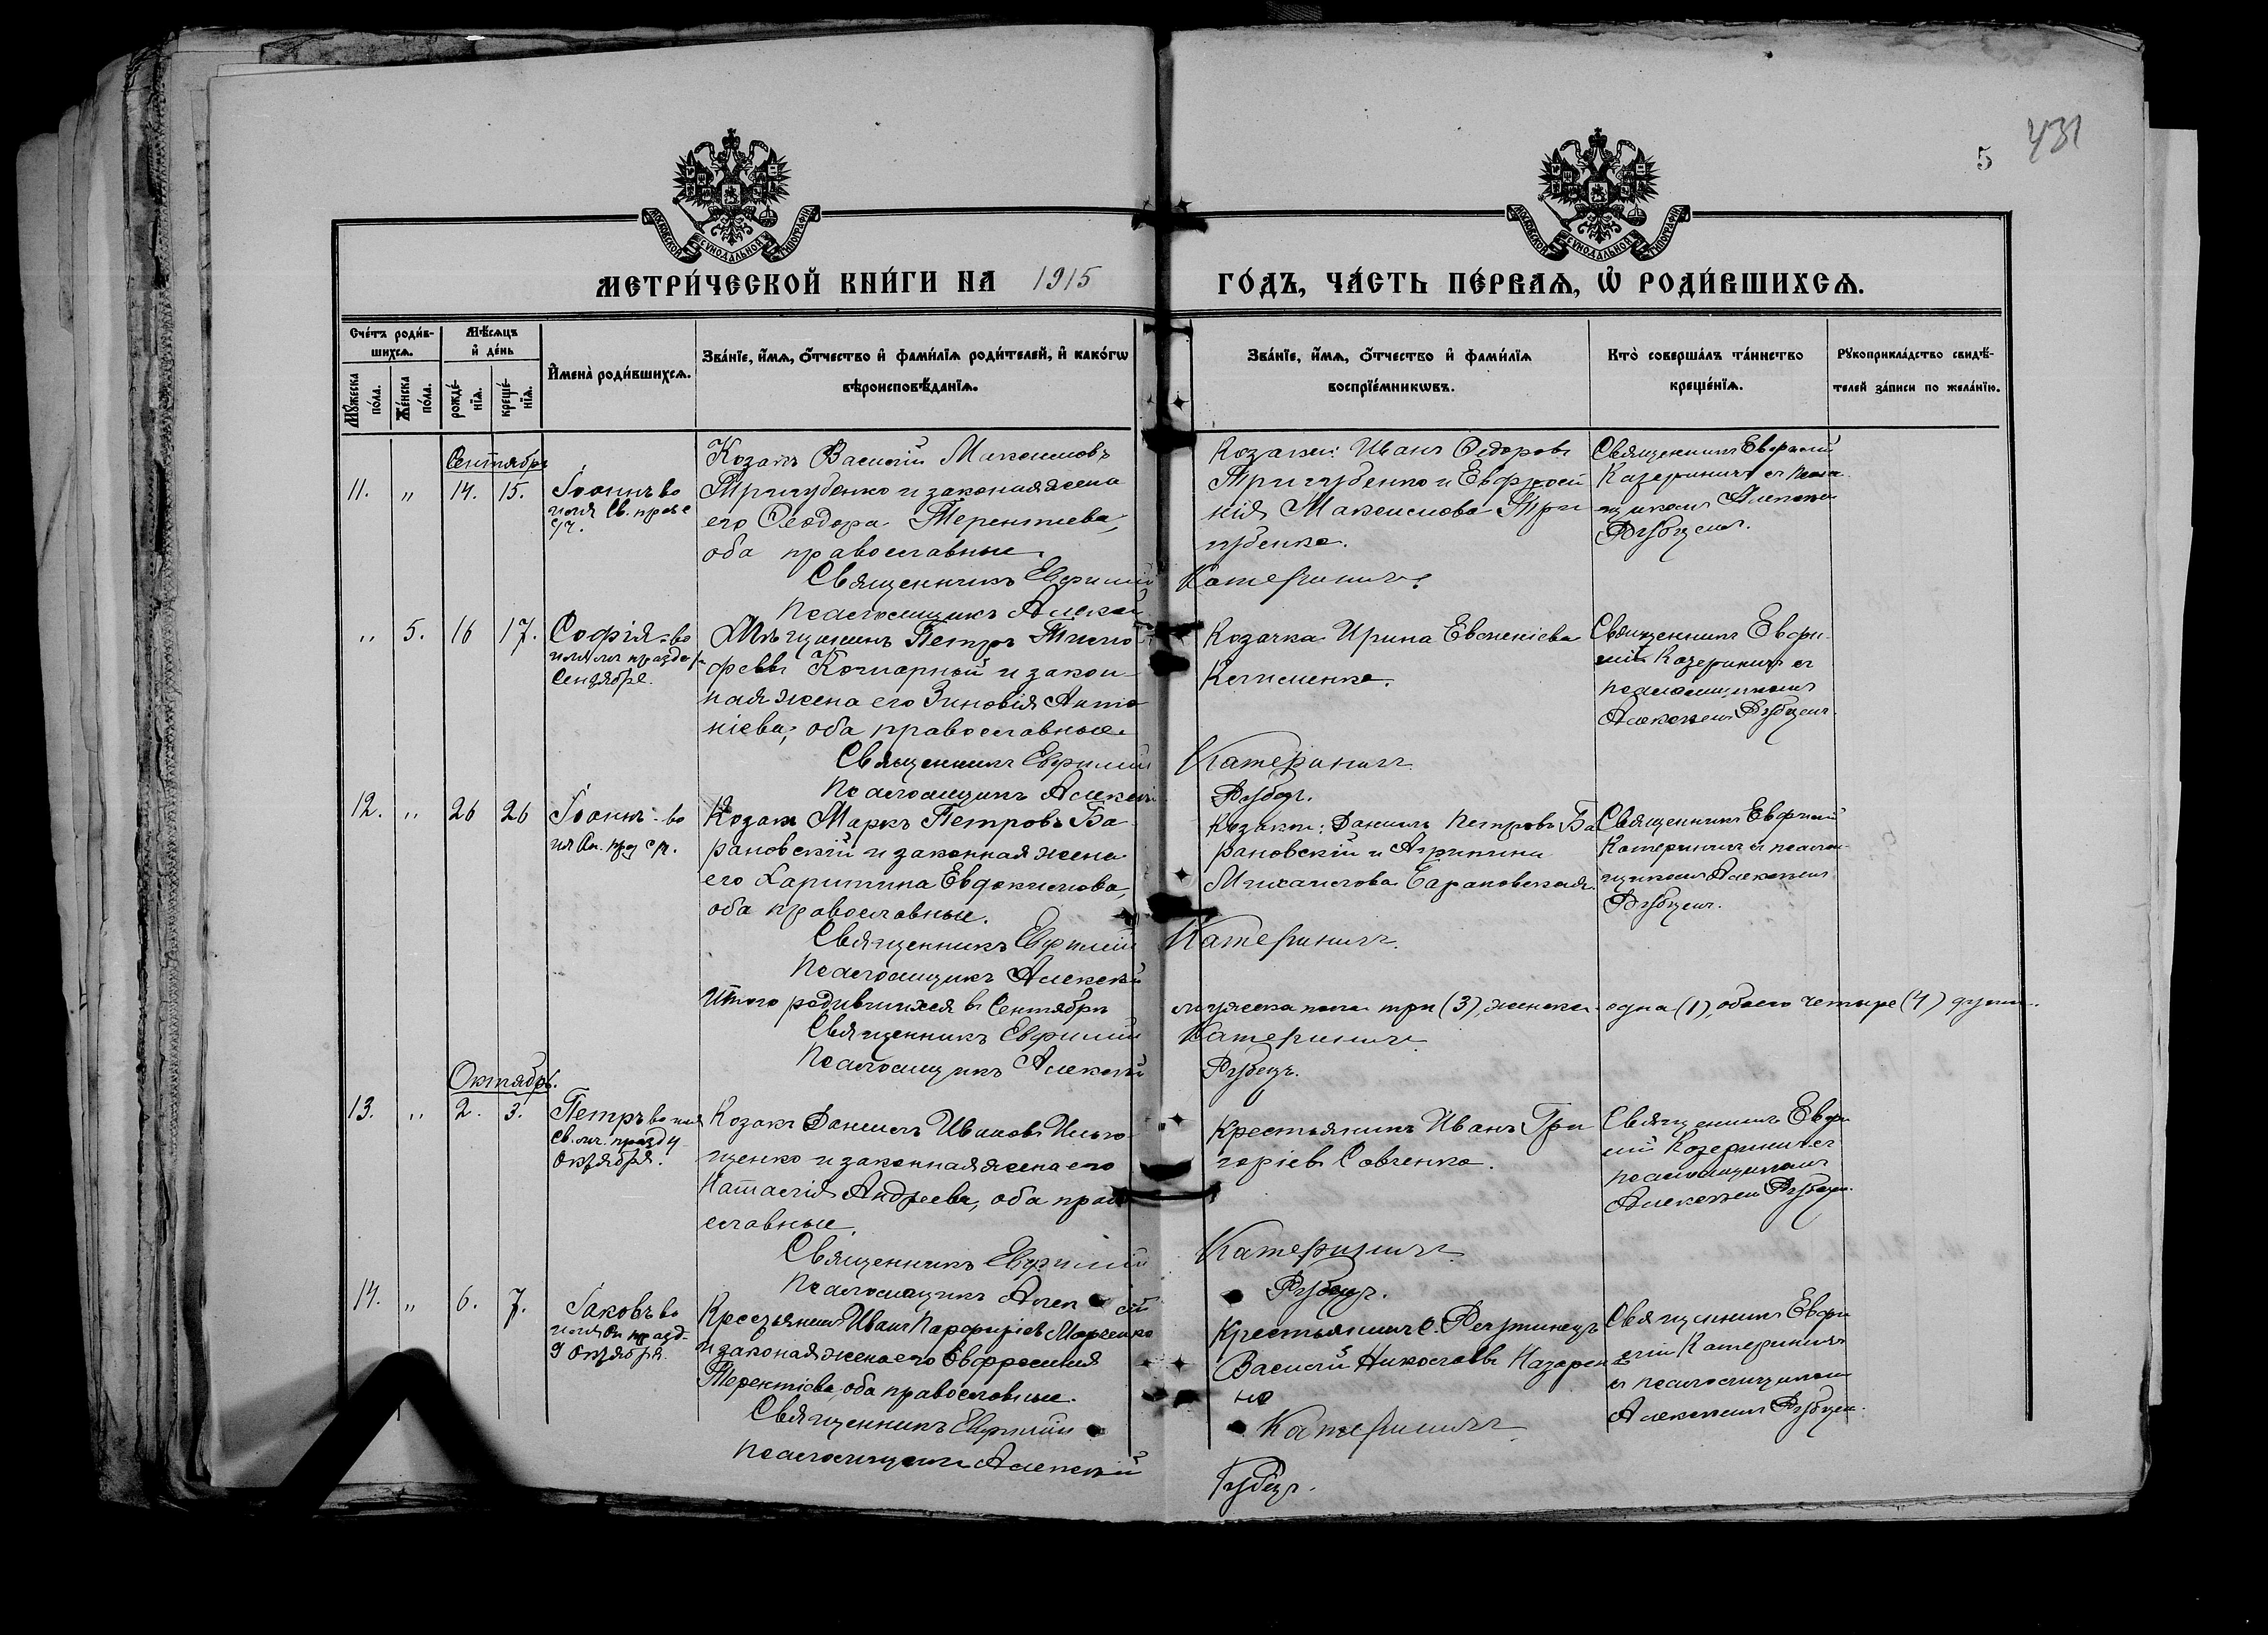 5
431
МОСКОВСКОЙ СѴНОДАЛЬНОЙ ТИПОГРАФІИ
МОСКОВСКОЙ СѴНОДАЛЬНОЙ ТИПОГРАФІИ
МЕТРИ́ЧЕСКОЙ КНИ́ГИ НА 1915
ГО́ДЪ, ЧА́СТЬ ПЕ́РВАѦ, Ѡ҆ РОДИ́ВШИХСѦ.
Сче́тъ роди́в-
шихсѧ.
Мѣ́сѧцъ
и҆ де́нь
Мꙋ́жеска по́ла.
Же́нска по́ла.
рожде́-
нїѧ.
креще́-
нїѧ.
И҆мена̀ роди́вшихсѧ.
Зва́нїе, и҆́мѧ, ѻ҆́тчество и҆ фами́лїѧ роди́телей, и҆ како́гѡ
вѣроисповѣ́данїѧ.
Зва́нїе, и҆́мѧ, ѻ҆́тчество и҆ фами́лїѧ
воспрїе́мникѡвъ.
Кто̀ соверша́лъ та́инство
креще́нїѧ.
Рꙋкоприкла́дство свидѣ́-
телей за́писи по жела́нїю.
Сентябрь
11. „ 14. 15.
Іоаннъ во
имя Св.
Козакъ Василій Максимовъ
Тригубенко и законая жена
его Феодора Терентіева,
оба православные.
Священникъ Евфимій
Псаломщикъ Алексѣй
Козаки: Иванъ Федоровъ
Тригубенко и Евфроси
нія Максимова Три
губенко.
Катериничъ
Священникъ Евфимій
Катериничъ съ псалом
щикомъ Алексѣем
Рубцемъ.
„ 5. 16 17.
Софія-во
имя мч празд
Сентября.
Мѣщанинъ Петръ Тимо
феевъ Кочкарный и закон-
ная жена его Зиновія Анто
ніева, оба православные.
Священникъ Евфимій
Псаломщикъ Алексѣй
Козачка Ирина Евгеніева
Клименко.
Катериничъ
Рубецъ.
Священникъ Евфи-
мій Катериничъ съ
псаломщикомъ
Алексѣемъ Рубцемъ.
12. „ 26 26
Іоаннъ-во
Козакъ Маркъ Петровъ Ба
рановскій и законная жена
его Харитина Евдокимова,
оба православные.
Священникъ Евфимій
Псаломщикъ Алексѣй
Козаки: Даніилъ Петровъ Ба
рановскій и Агрипина
Михайлова Барановская.
Катериничъ.
Священникъ Евфимій
Катериничъ съ псалом
щикомъ Алексѣемъ
Рубцемъ.
Итого родившихся въ Сентябрѣ
мужеска пола три (3), женска одна (1), обоего четыре (4) души.
Священникъ Евфимій
Катериничъ
Псаломщикъ Алексѣй
Рубецъ.
Октябрь.
13. „ 2. 3.
Петръ во имя
св. мч. празд 4
Октября.
Козакъ Даніилъ Ивановъ
и законная жена его
Наталія Андреева, оба право
славные.
Священникъ Евфимій
Псаломщикъ Алексѣй
Крестьянинъ Иванъ Гри
горіевъ Савченко.
Катериничъ
Рубецъ.
Священникъ Евфи
мій Катериничъ съ
псаломщикомъ
Алексѣем Рубцем.
14. „ 6. 7.
Іаковъ во
имя Ап. празд-
9 Октября.
Крестьянинъ Иванъ Парфиріевъ Марченко
и законая жена его Евфросинія
Терентіева, оба православные.
Священникъ Евфимій
Псаломщикъ Алексѣй
Крестьянинъ с.
Василій Николаевъ Назарен
ко
Катериничъ
Рубецъ.
Священникъ Евфи
мій Катериничъ
съ псаломщикомъ
Алексѣемъ Рубцем.